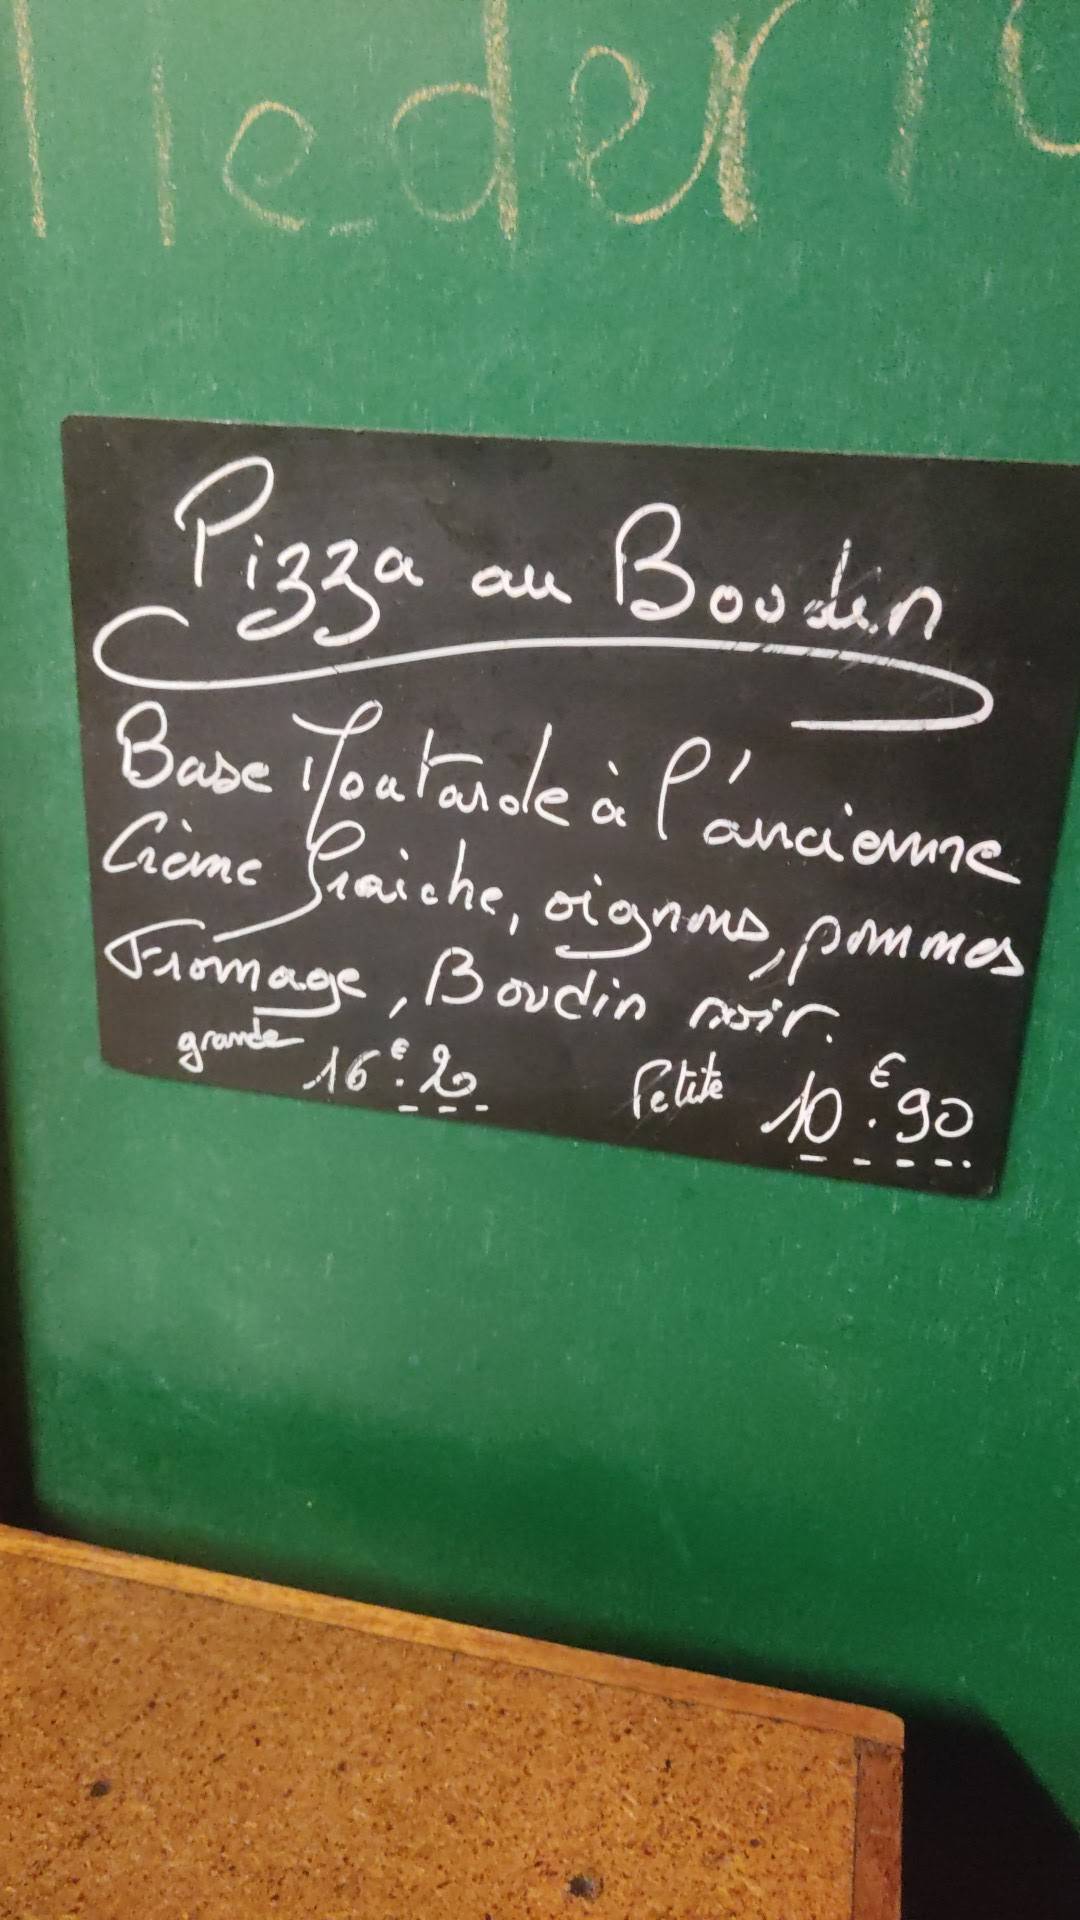 Pizza au Boudin
Base Moutarde à l'ancienne
Crème fraiche, oignons, pommes
Fromage, Boudin noir.
grande 16€.20 Petite 10€.90